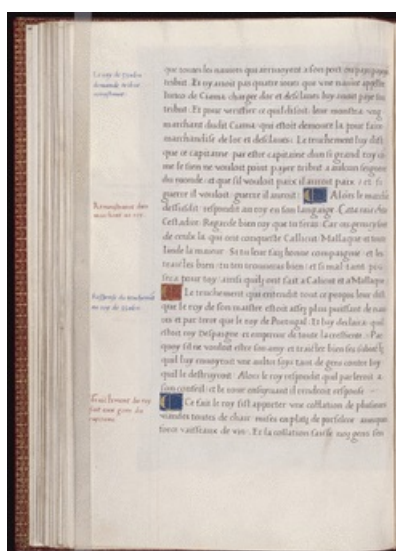 Le roy de Zzubu
demande tribut
que toutes les navires qui arrivoyent a son port
tribut. Et ny avoit pas quatre jours que une navire appellee
de Ciama charge dor et desclaves luy avoit paye son
tribut. Et pour verifier ce quil disoit leur monstra ung
marchant dudit Ciama qui estoit demoure la pour faire
marchandise de lor et desclaves. Le truchement luy dist
que ce capitaine par estre capitaine dun si grand roy
me le sien ne vouloit point payer tribut a aulcun seigneur
du monde et que sil vouloit paix il auroit paix et si
guerre il vouloit guerre il auroit. Alors le marchant
dessusdit respondit au roy en son langaige Cata raia chita
Cestadire Regarde bien roy que tu feras Car ces gens
de ceulx la qui ont conqueste Callicut Mallaque et toute
Inde la maieur Si tu leur fais bonne compaignie et les
traictes bien tu ten trouveras bien et si mal tant pis
sera pour toy ainsi quilz ont fait a Calicut et a Mallaque
Le truchement qui entendit tout ce propos leur dist
que le roy de son maistre estoit assez plus puissant de navires
et par terre que le roy de Portugal Et luy declara quil
estoit roy Despaigne et empereur de toute la crestiente. Par
quoy sil ne vouloit estre son amy et traicter bien ses
quil luy envoyroit une aultre foys tant de gens contre luy
quil le destruyroit. Alors le roy respondit quil parleroit a
son conseil et le jour ensuyvant il rendroit response
Ce fait le roy fist apporter une collation de plusieurs
viandes toutes de chair mises en platz de porseline avecques
force vaisseaux de vin. Et la collation faicte noz gens sen
Remonstrance dun
marchant au roy
Response du truchement
au roy de Zzubu
du roy